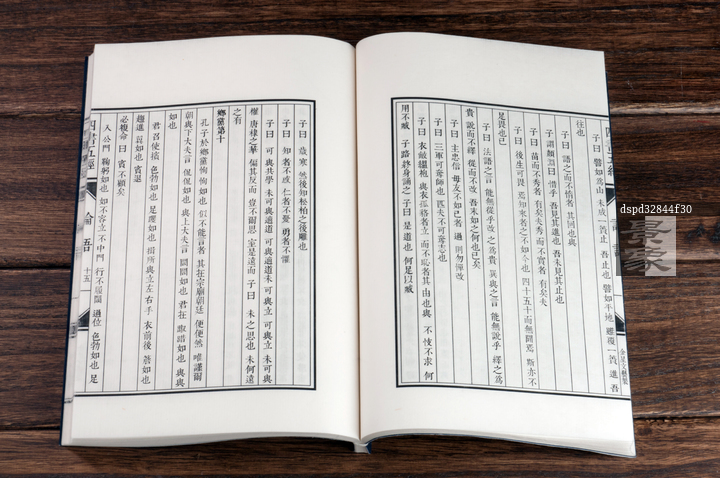 四書五經
子曰 譬如爲山 未成一簣 止 吾止也 譬如平地 雖覆一簣 進 吾
往也
子曰 語之而不惰者 其回也與
子謂顏淵曰 惜乎 吾見其進也 未見其止也
子曰 苗而不秀者 有矣夫 秀而不實者 有矣夫
子曰 後生可畏 焉知來者之不如今也 四十五十而無聞焉 斯亦不
足畏也已
子曰 法語之言 能無從乎 改之爲貴 巽與之言 能無說乎 繹之爲
貴 說而不繹 從而不改 吾末如之何也已矣
子曰 主忠信 毋友不如己者 過則勿憚改
子曰 三軍可奪帥也 匹夫不可奪志也
子曰 衣敝縕袍 與衣狐貉者立 而不恥者 其由也與 不忮不求 何
用不臧 子路終身誦之 子曰 是道也 何足以臧
子曰 歲寒 然後知松柏之後雕也
子曰 知者不惑 仁者不憂 勇者不懼
子曰 可與共學 未可與適道 可與適道 未可與立 可與立 未可與
權 唐棣之華 偏其反而 豈不爾思 室是遠而 子曰 未之思也 夫何遠
之有
鄉黨第十
孔子於鄉黨 恂恂如也 似不能言者 其在宗廟朝廷 便便然 唯謹爾
朝與下大夫言 侃侃如也 與上大夫言 誾誾如也 君在 踧踖如也 與與
如也
君召使擯 色勃如也 足躩如也 揖所與立左右手 衣前後 襜如也
趨進 翼如也 賓退
必複命曰 賓不顧矣
入公門 鞠躬如也 如不容 立不中門 行不履閾 過位 色勃如也 足
四書五經 論語 十五
dspd32844f30